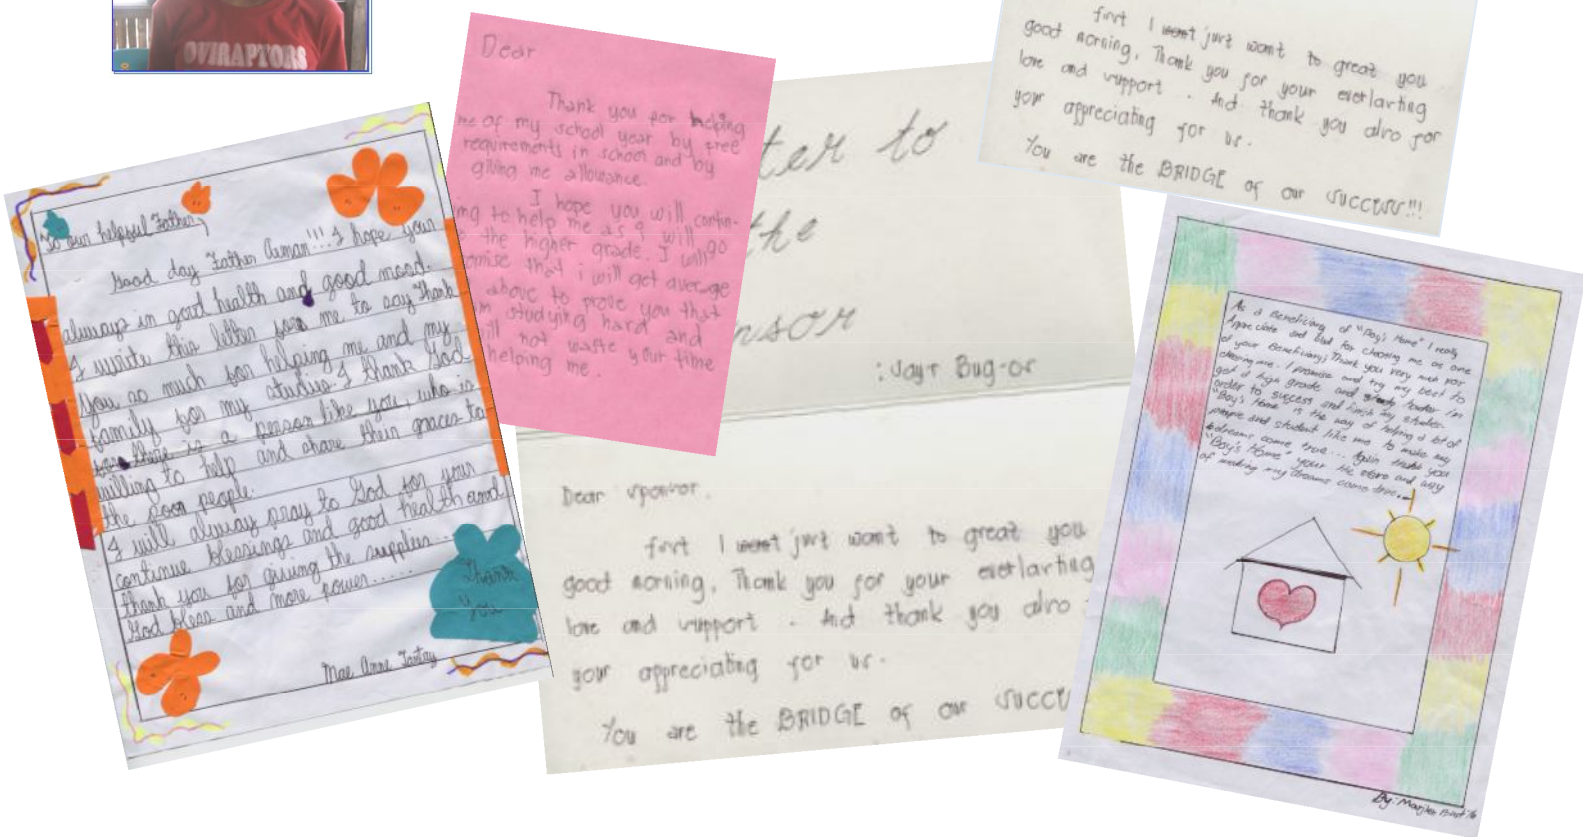 OVIRAPTORS
To our helpful Father,
Good day Father Aiman!!! I hope your
always in good health and good mood.
I write this letter for me to say Thank
You so much for helping me and my
family for my studies. I thank God
there is a person like you, who is
willing to help and share their graces to
the poor people.
I will always pray to God for your
continue blessings and good health and
thank you for giving the supplies...
God bless and more power.....
Thank
You
Mae Anne
Dear
Thank you for helping
me of my school year by free
requirements in school and by
giving me allowance.
I hope you will contin-
ng to help me as I will go
the higher grade. I will
omise that i will get average
above to prove you that
m studying hard and
ill not waste your time
helping me.
ter to
the
nsor
: Jayr Bug-os
Dear sponsor,
first I want just want to great you
good morning, Thank you for your everlasting
love and support. And thank you also
your appreciating for us.
You are the BRIDGE of our succe
first I want just want to great you
good morning, Thank you for your everlasting
love and support. And thank you also for
your appreciating for us.
You are the BRIDGE of our success!!!
As a Beneficiary of "Boy's Home" I really
Appreciate and Glad for choosing me as one
of your Beneficiary; Thank you very much for
choosing me. I promise and try my best to
get a high grade and greaty leader in
order to success and finish my studies.
"Boy's Home" is the way of helping a lot of
people and student like me to make my
dreams come true... Again thank you
"Boy's Home" your the store and way
of making my dreams come true...
By: Marjten